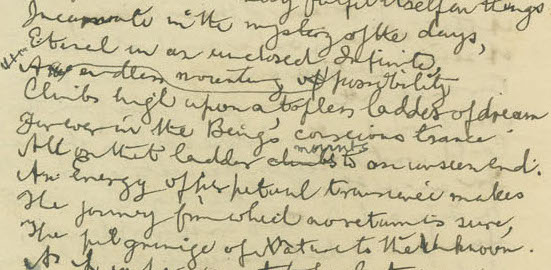 fulfil itself in things
Incarnate in the mystery of the days,
Eternal in an unclosed Infinite,
An endless mounting possibility
Climbs high upon a topless ladder of dream
For ever in the Being's conscious trance
All on that ladder climbs mounts to an unseen end.
An Energy of perpetual transience makes
The journey from which no return is sure,
The pilgrimage of Nature to the Unknown.
As